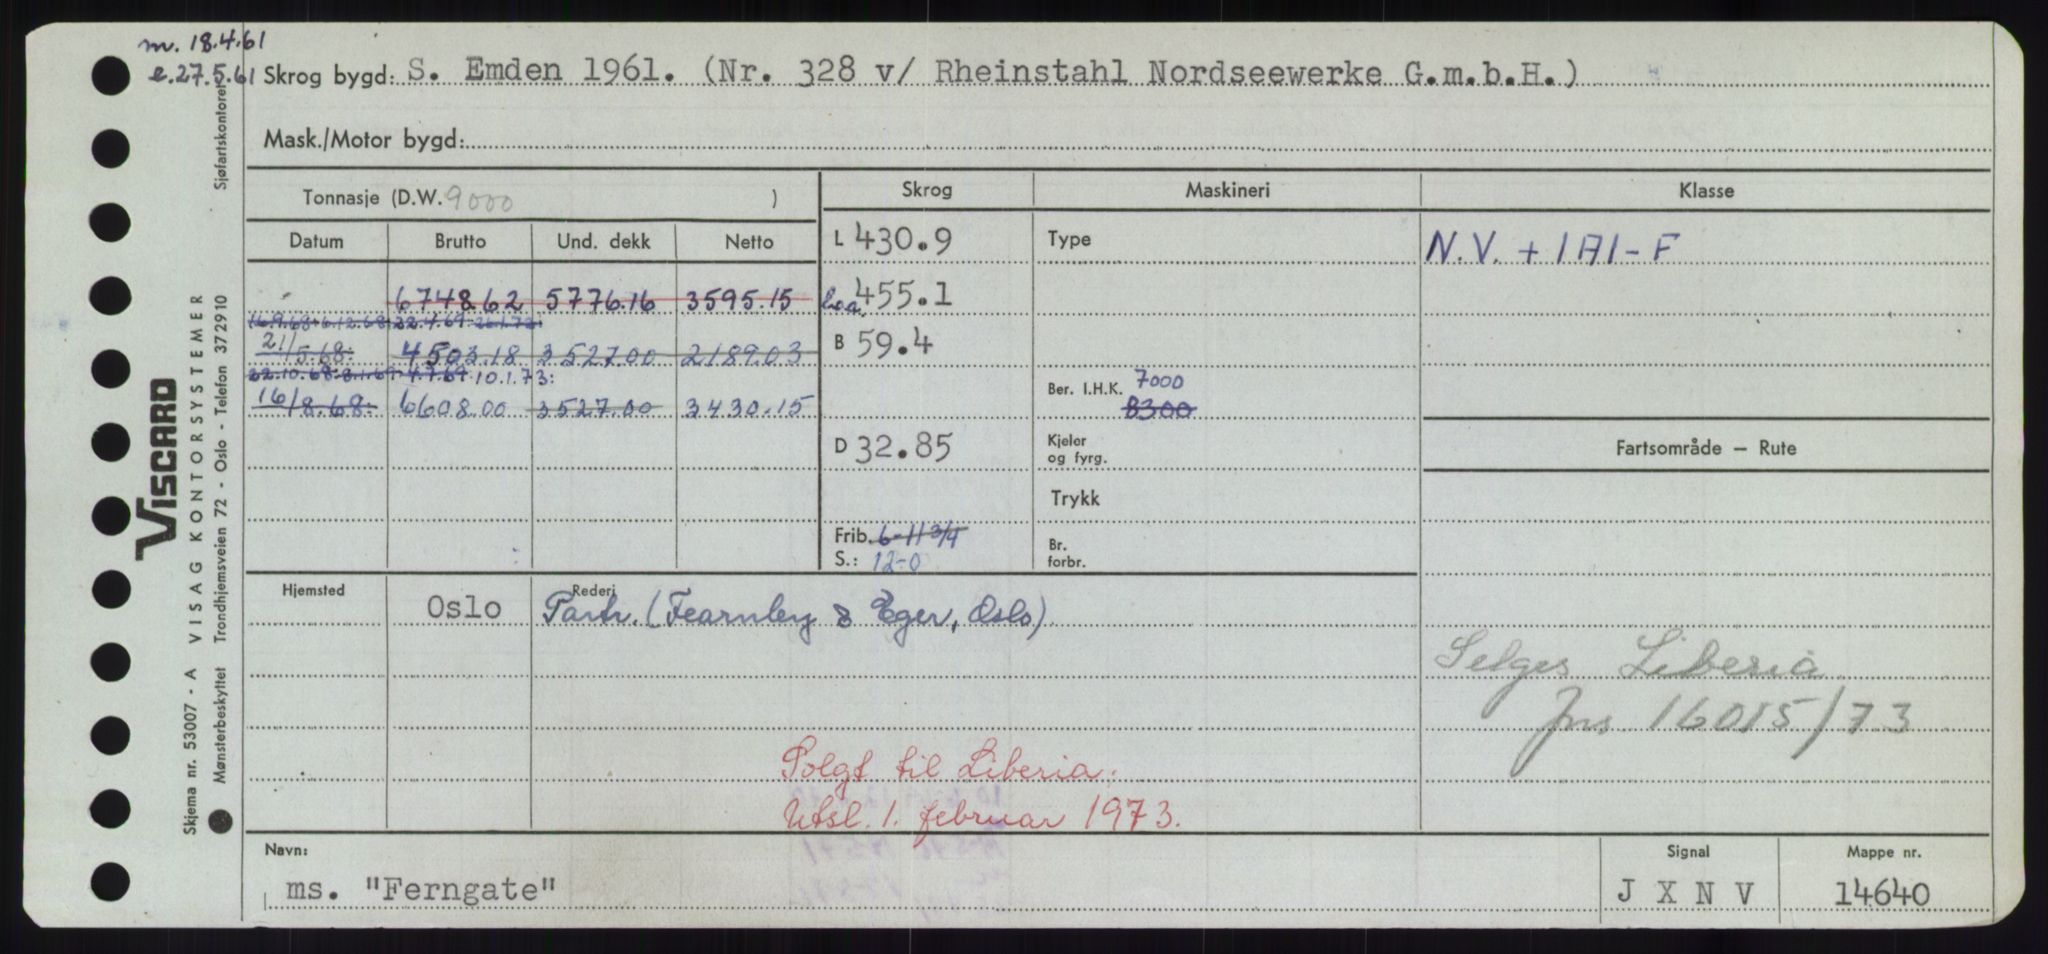 m. 18.4.61
e. 27.5.61
Skrog bygd: S. Emden 1961. (Nr. 328 v/ Rheinstahl Nordseewerke G.m.b.H.)
Mask./Motor bygd:
Tonnasje (D.W. 9000 )
Skrog Maskineri Klasse
Datum Brutto Und. dekk Netto
L 430.9 Type N.V. + 1A1-F
6748.62 5776.16 3595.15
Loa. 455.1
16.9.68 6.12.68 22.4.69 26.1.72
21/5.68. 4503.18 3527.00 2189.03
B 59.4
22.10.68 8.1.69 4.7.69 10.1.73:
16/8.68. 6608.00 3527.00 3430.15
Ber. I.H.K. 7000
8300
D 32.85
Kjeler
og fyrg.
Fartsområde — Rute
Trykk
Frib. 6-11 3/4
S.: 12-0
Br.
forbr.
Hjemsted Rederi
Oslo Partr. (Fearnley & Eger, Oslo)
Selges Liberia
Jns 16015/73
Solgt til Liberia.
Utsl. 1. februar 1973.
Navn: Signal Mappe nr.
ms. "Ferngate" J X N V 14640
Skjema nr. 53007 - A VISAG KONTORSYSTEMER
Mønsterbeskyttet Trondhjemsveien 72 - Oslo - Telefon 372910
Sjøfartskontoret
VISCARD